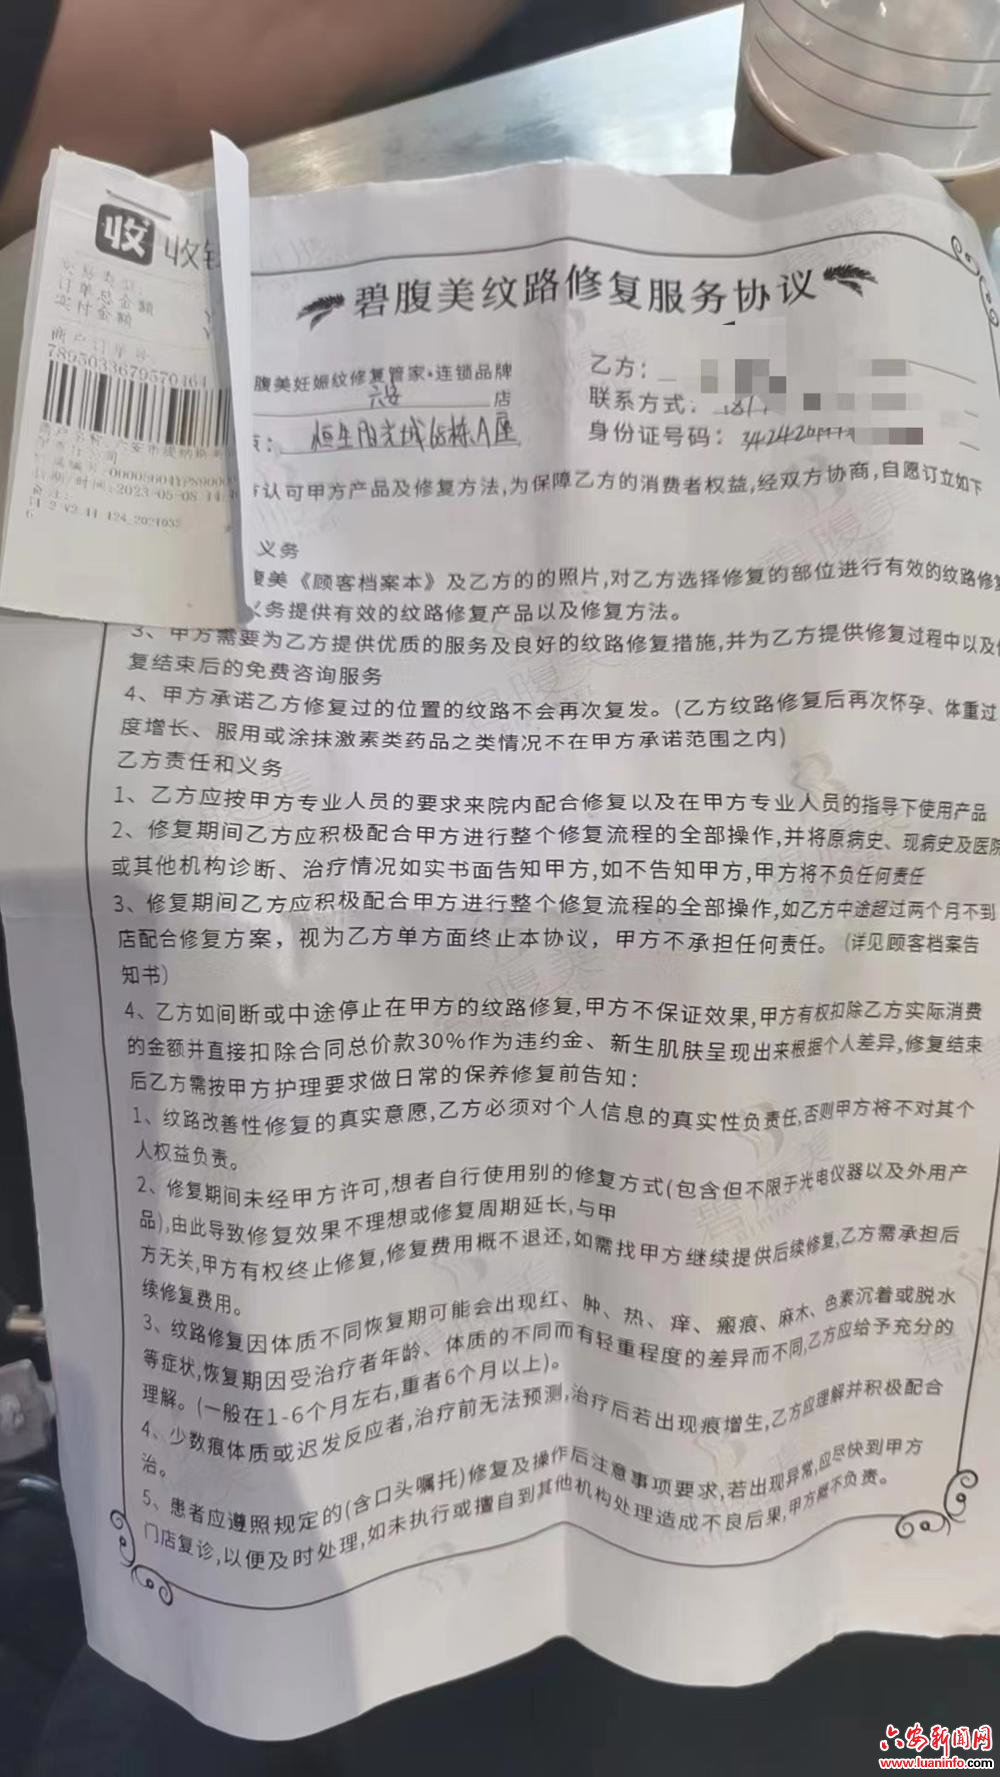 收 收钱
交易类型:
订单总金额
实付金额
商户订单号:
7895033679570464
日期/时间:2023-05-08
备注:
碧腹美纹路修复服务协议
腹美妊娠纹修复管家·连锁品牌
六安 店
恒生阳光城68栋A座
乙方:
联系方式:
身份证号码:
认可甲方产品及修复方法,为保障乙方的消费者权益,经双方协商,自愿订立如下
义务
腹美《顾客档案本》及乙方的的照片,对乙方选择修复的部位进行有效的纹路修复
义务提供有效的纹路修复产品以及修复方法。
3、甲方需要为乙方提供优质的服务及良好的纹路修复措施,并为乙方提供修复过程中以及
复结束后的免费咨询服务
4、甲方承诺乙方修复过的位置的纹路不会再次复发。(乙方纹路修复后再次怀孕、体重过
度增长、服用或涂抹激素类药品之类情况不在甲方承诺范围之内)
乙方责任和义务
1、乙方应按甲方专业人员的要求来院内配合修复以及在甲方专业人员的指导下使用产品
2、修复期间乙方应积极配合甲方进行整个修复流程的全部操作,并将原病史、现病史及医院
或其他机构诊断、治疗情况如实书面告知甲方,如不告知甲方,甲方将不负任何责任
3、修复期间乙方应积极配合甲方进行整个修复流程的全部操作,如乙方中途超过两个月不到
店配合修复方案，视为乙方单方面终止本协议，甲方不承担任何责任。(详见顾客档案告
知书)
4、乙方如间断或中途停止在甲方的纹路修复,甲方不保证效果,甲方有权扣除乙方实际消费
的金额并直接扣除合同总价款30%作为违约金、新生肌肤呈现出来根据个人差异,修复结束
后乙方需按甲方护理要求做日常的保养修复前告知:
1、纹路改善性修复的真实意愿,乙方必须对个人信息的真实性负责任,否则甲方将不对其个
人权益负责。
2、修复期间未经甲方许可,想者自行使用别的修复方式(包含但不限于光电仪器以及外用产
品),由此导致修复效果不理想或修复周期延长,与甲
方无关,甲方有权终止修复,修复费用概不退还,如需找甲方继续提供后续修复,乙方需承担后
续修复费用。
3、纹路修复因体质不同恢复期可能会出现红、肿、热、痒、瘢痕、麻木、色素沉着或脱水
等症状,恢复期因受治疗者年龄、体质的不同而有轻重程度的差异而不同,乙方应给予充分的
理解。(一般在1-6个月左右,重者6个月以上)。
4、少数痕体质或迟发反应者,治疗前无法预测,治疗后若出现痕增生,乙方应理解并积极配合
治。
5、患者应遵照规定的(含口头嘱托)修复及操作后注意事项要求,若出现异常,应尽快到甲方
门店复诊,以便及时处理,如未执行或擅自到其他机构处理造成不良后果,甲方概不负责。
六安新闻网
www.luaninfo.com